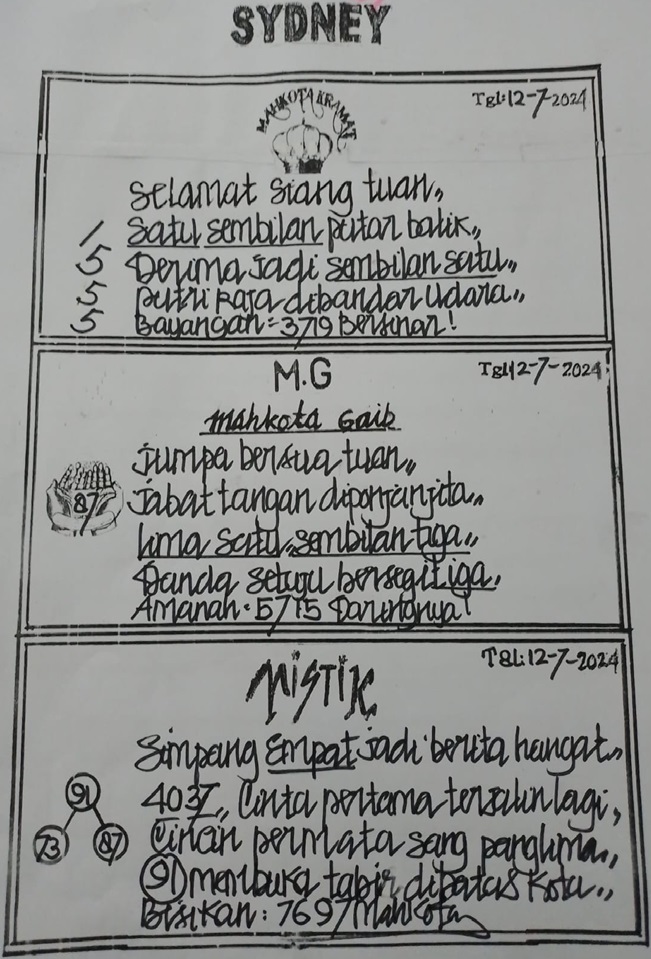 SYDNEY
MAHKOTA KRAMAT
Tgl:12-7-2024
Selamat siang tuan,,
1 Satu sembilan putar balik,,
5 Derima jadi sembilan satu,,
5 putri raja dibandar udara,,
5 Bayangan=3719 Bersinar!
M.G
Tgl12-7-2024
Mahkota Gaib
jumpa bersua tuan,,
87
jabat tangan dipanjanjita,,
lima satu,,sembilan tiga,,
Danda setuju bersegitiga,
Amanah=5715 Darungnya!
Mistik
Tgl:12-7-2024
Simpang Empat jadi berita hangat,,
91
4037,, Cinta pertama tersalin lagi,
73 87
Cincin permata sang panglima,,
91 membuka tabir dibatas kota,,
Bisikan: 7697 Mahkota